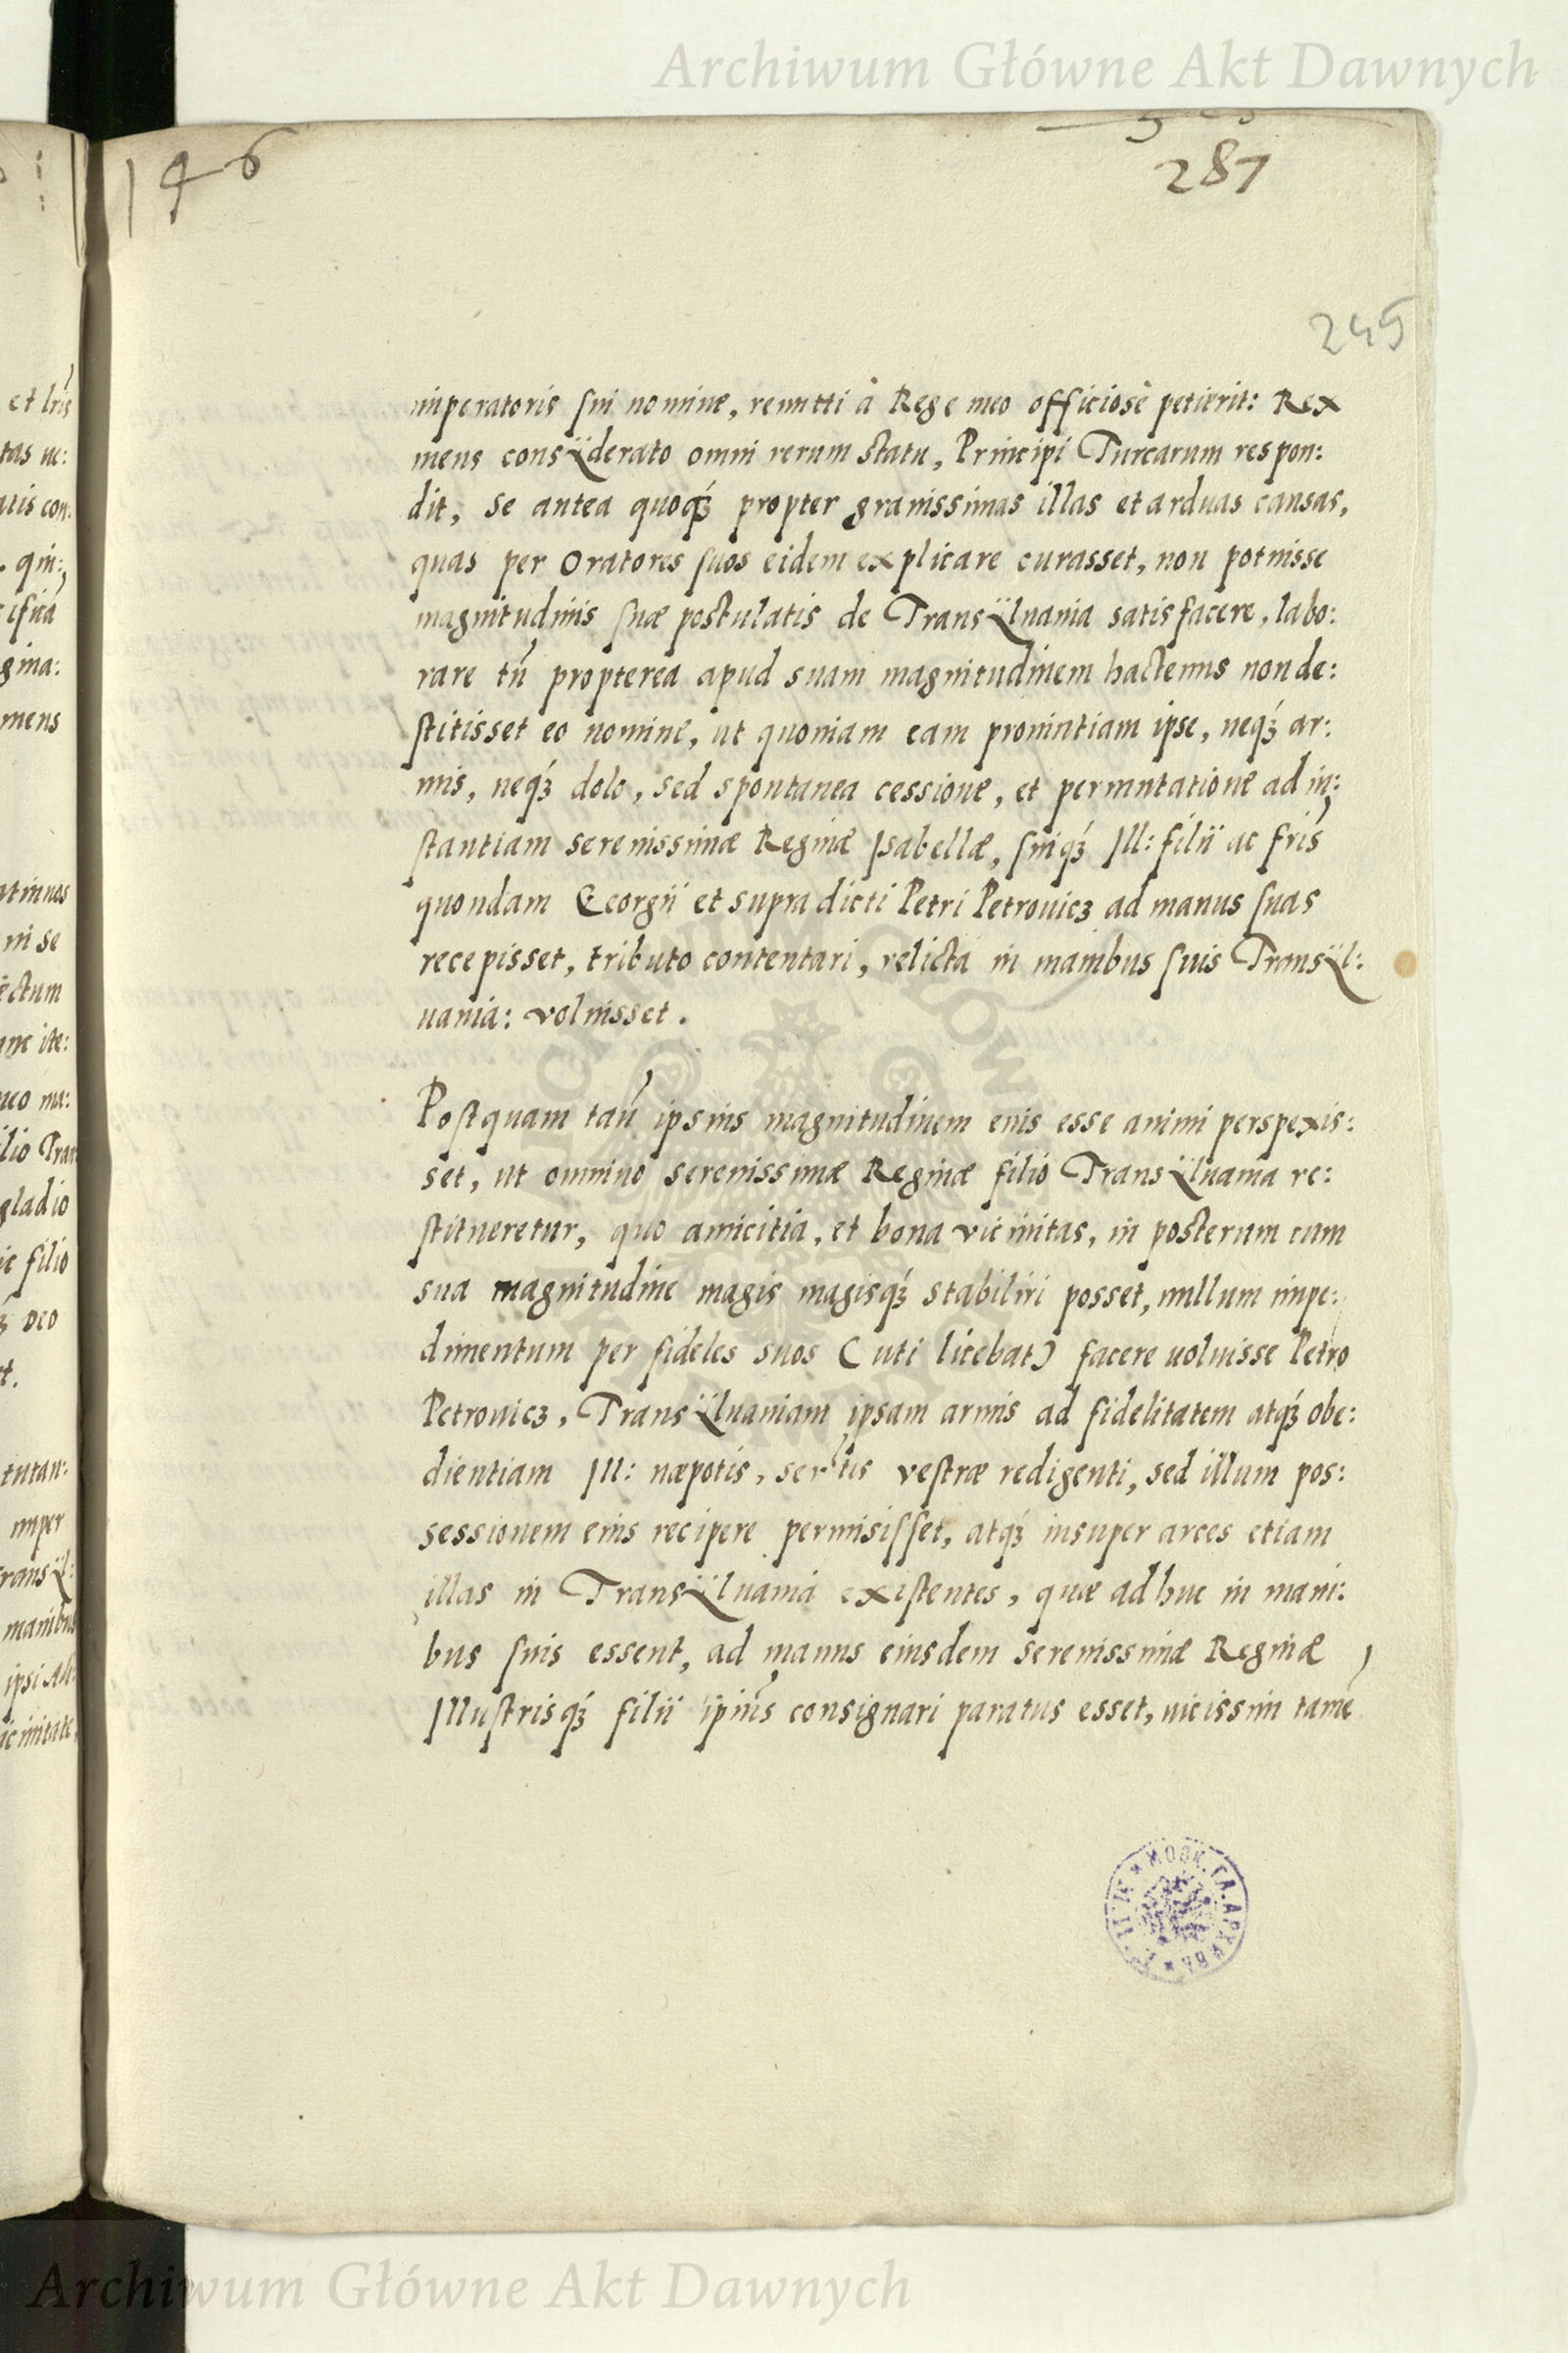 Archiwum Główne Akt Dawnych
146
287
245
imperatoris sui nomine, remitti à Rege meo officiosè petierit: Rex
meus consÿderato omni rerum statu, Principi Turcarum respon:
dit, se antea quoq́ꝫ propter grauissimas illas et arduas causas,
quas per Oratores suos eidem explicare curasset, non potuisse
magnitudinis suæ postulatis de Transÿluania satisfacere, labo:
rare tñ propterea apud suam magnitudinem hactenus non de:
stitisset eo nomine, ut quoniam eam prouintiam ipse, neq́ꝫ ar:
mis, neq́ꝫ dolo, sed spontanea cessione, et permutatione ad in:
stantiam serenissimæ Reginæ Isabellæ, suiq́ꝫ Ill: filii ac fris
quondam Georgii et supradicti Petri Petrouicz ad manus suas
recepisset, tributo contentari, relicta in manibus suis Transÿl:
uaniá: voluisset.
Postquam tañ ipsius magnitudinem eius esse animi perspexis:
set, ut omnino serenissimæ Reginæ filio Transÿluania re:
stitueretur, quo amicitia, et bona vicinitas, in posterum cum
sua magnitudine magis magisq́ꝫ stabiliri posset, nullum impe:
dimentum per fideles suos (uti licebat) facere uoluisse Petro
Petrouicz, Transÿluaniam ipsam armis ad fidelitatem atq́ꝫ obe:
dientiam Ill: næpotis, sertis vestræ redigenti, sed illum pos:
sessionem eius recipere permisisset, atq́ꝫ insuper arces etiam
illas in Transÿluaniá existentes, quæ adhuc in mani:
bus suis essent, ad manus eiusdem serenissimæ Reginæ
Illustrisq́ꝫ filii ipius consignari paratus esset, uicissim tamẽ
Archiwum Główne Akt Dawnych